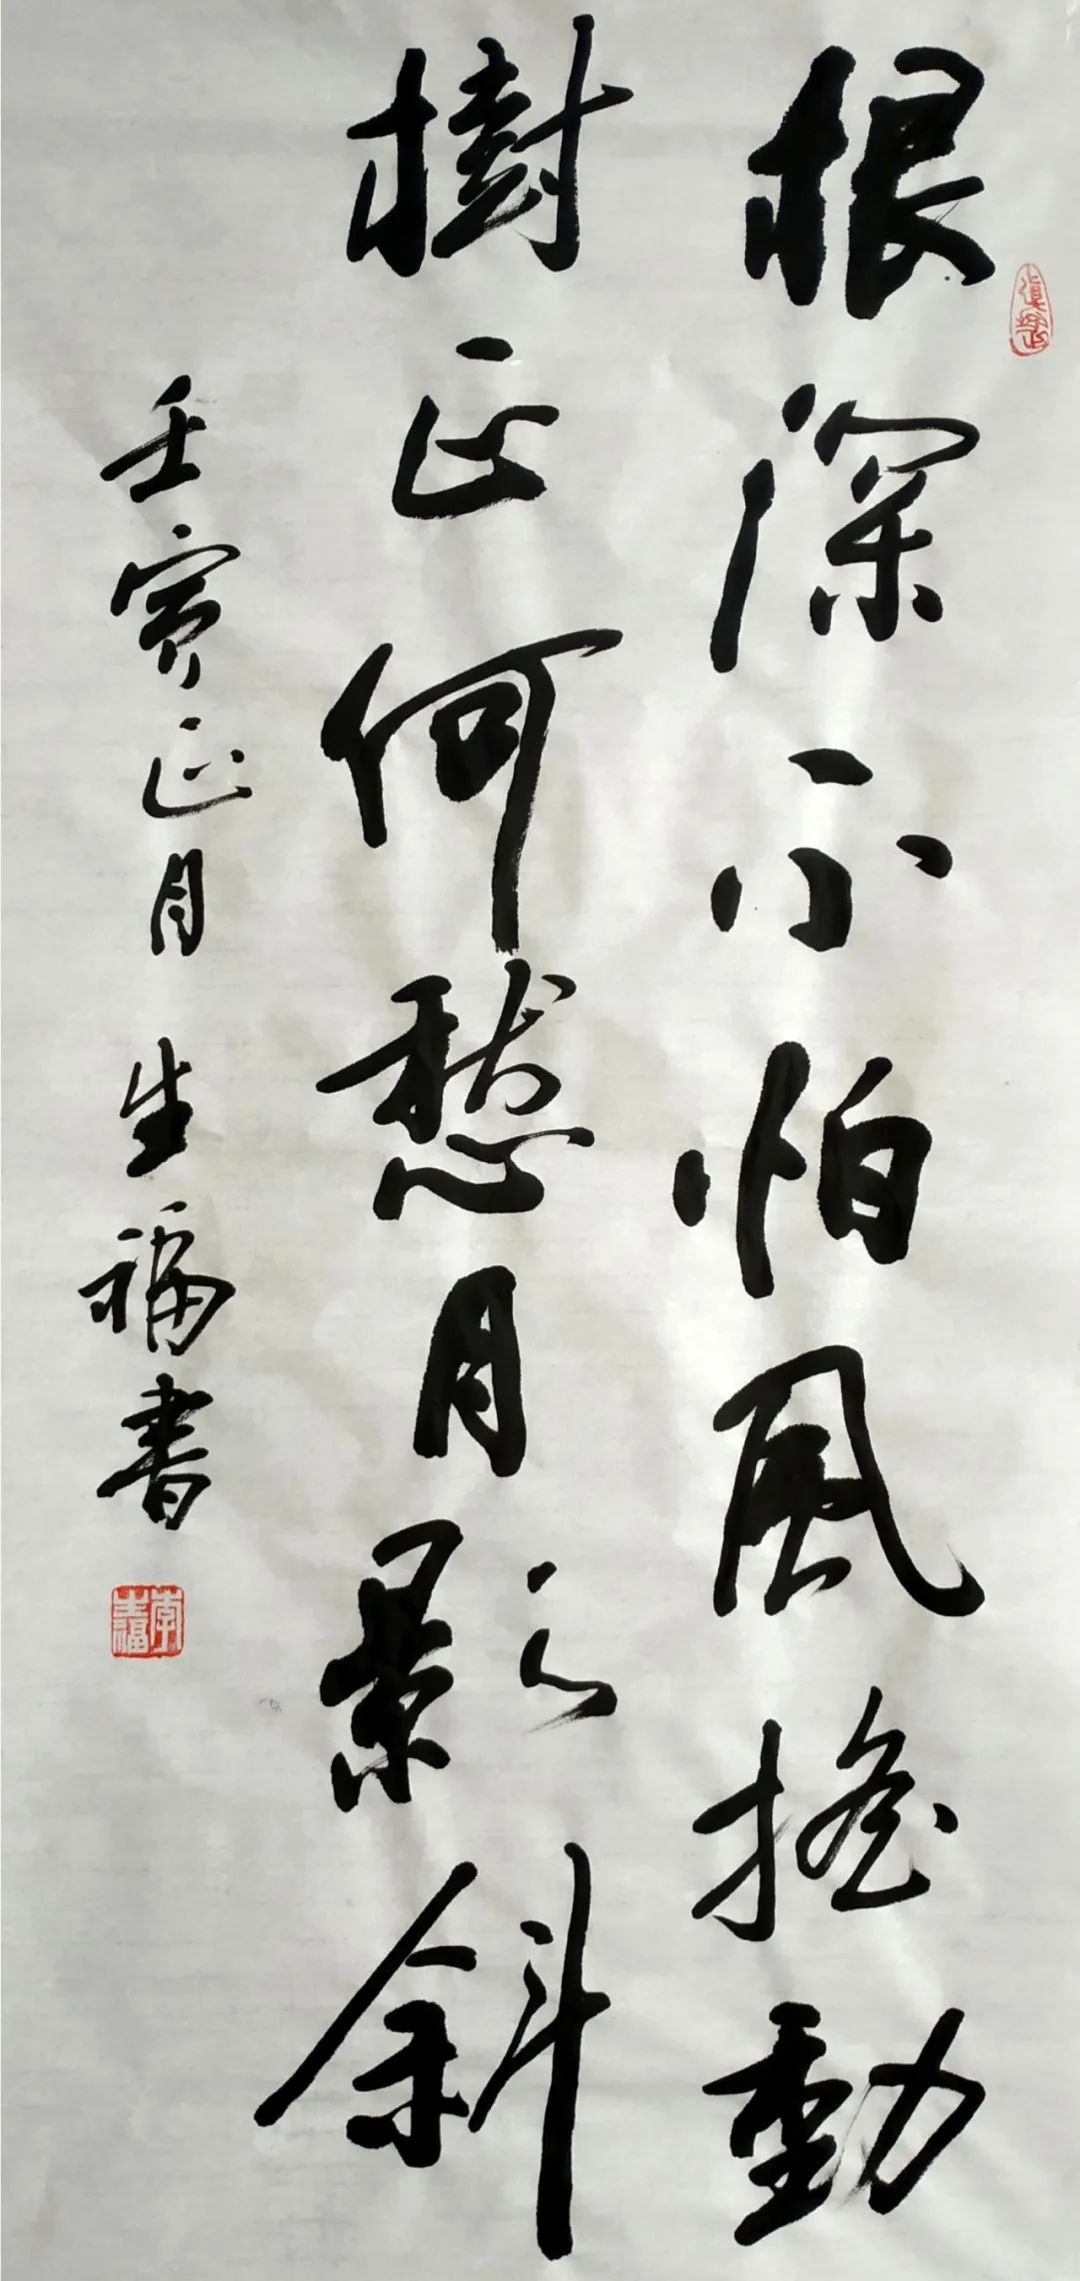 根深不怕風搖動
樹正何愁月影斜
壬寅正月 生福書
李生福